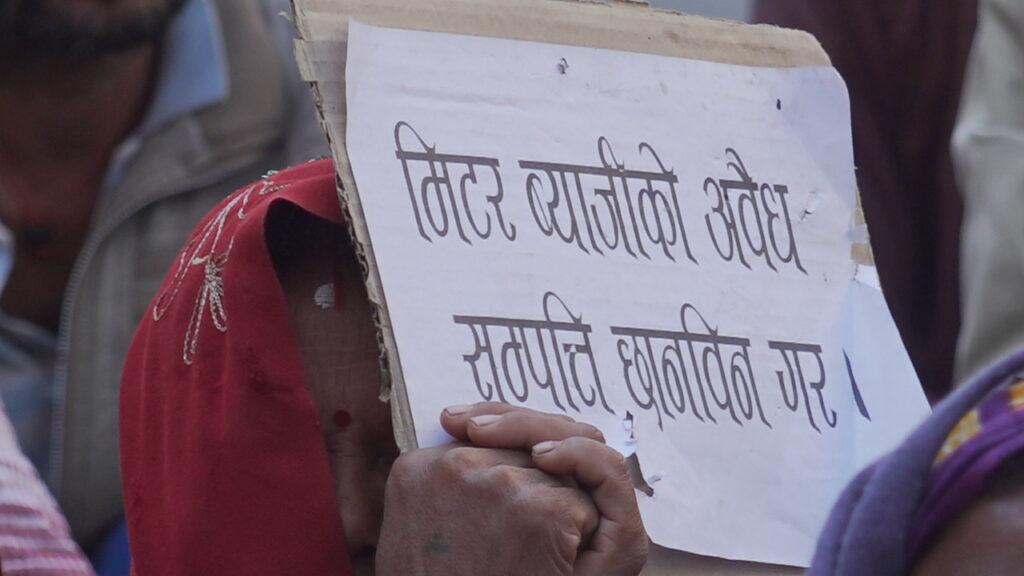 मिटर ब्याजीको अवैध
सम्पत्ति छानविन गर